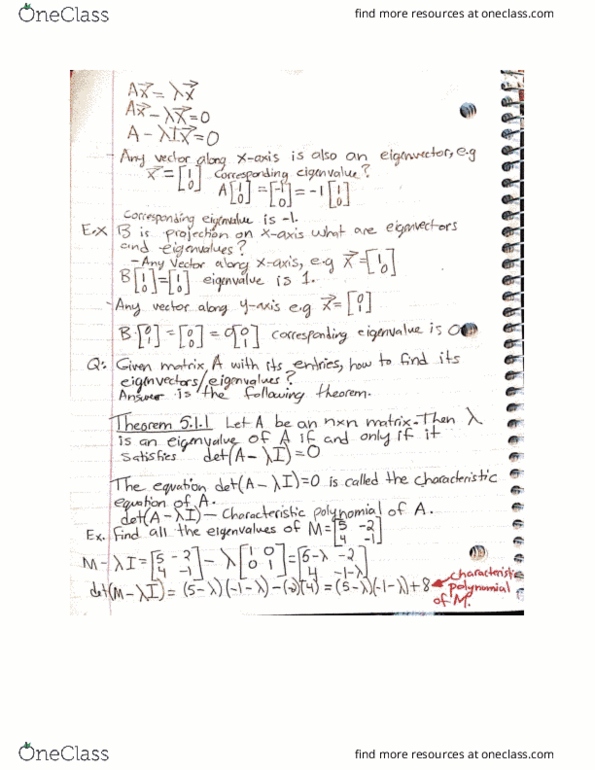 OneClass
find more resources at oneclass.com
Ax⃗ = λx⃗
Ax⃗ - λx⃗ = 0
A - λIx⃗ = 0
- Any vector along x-axis is also an eigenvector, e.g
x⃗ = [1 0] Corresponding eigenvalue?
A[1 0] = [-1 0] = -1[1 0]
Corresponding eigenvalue is -1.
Ex B is projection on x-axis what are eigenvectors
and eigenvalues?
- Any Vector along x-axis, e.g x⃗ = [1 0]
B[1 0] = [1 0] eigenvalue is 1.
- Any vector along y-axis e.g x⃗ = [0 1]
B·[0 1] = [0 0] = 0[0 1] corresponding eigenvalue is 0
Q: Given matrix A with its entries, how to find its
eigenvectors/eigenvalues?
Answer is the following theorem.
Theorem 5.1.1 Let A be an n×n matrix. Then λ
is an eigenvalue of A if and only if it
satisfies det(A - λI) = 0
The equation det(A - λI) = 0 is called the characteristic
equation of A.
det(A - λI) — Characteristic polynomial of A.
Ex. Find all the eigenvalues of M = [5 -2; 4 -1]
M - λI = [5 -2; 4 -1] - λ[1 0; 0 1] = [5-λ -2; 4 -1-λ]
det(M - λI) = (5-λ)(-1-λ) - (-2)(4) = (5-λ)(-1-λ) + 8
characteristic
polynomial
of M.
OneClass
find more resources at oneclass.com